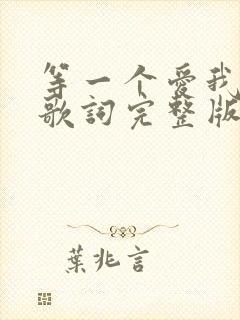 等一个愛我
歌詞完整版
葉兆言